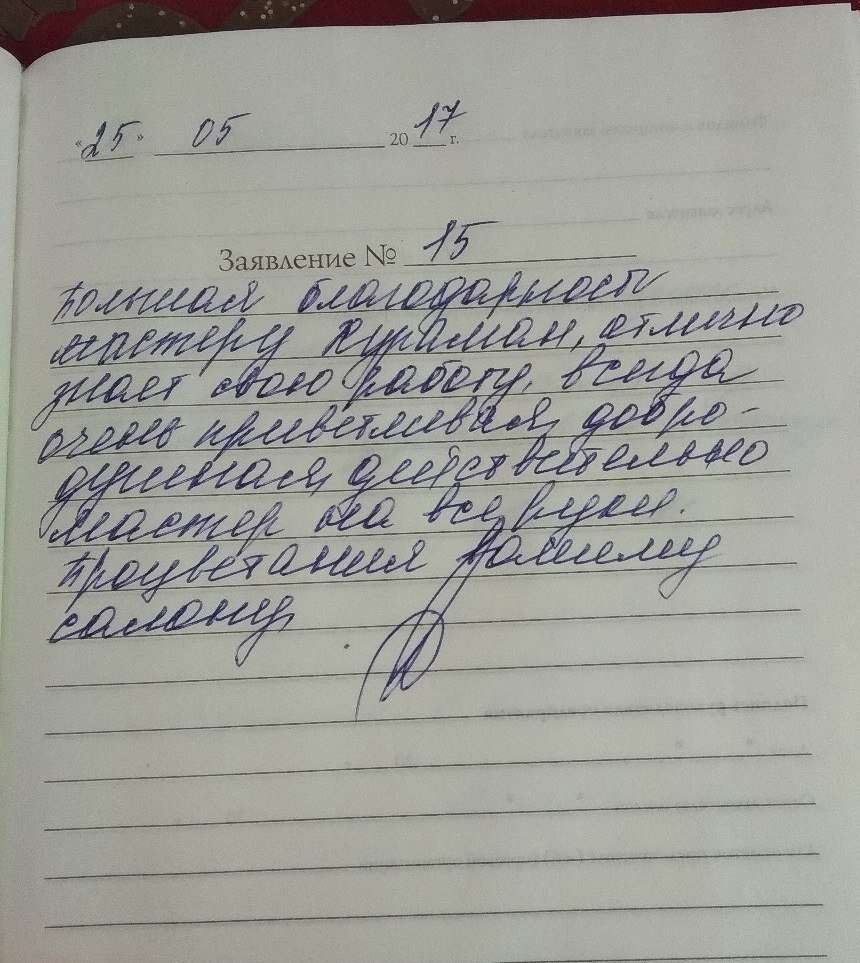 «25» 05 2017 г.
Заявление № 15
Большая благодарность
мастеру Нураман, отлично
знает свою работу, всегда
очень приветливая, добро-
душная, действительно
мастер на все руки.
Процветания Вашему
салону